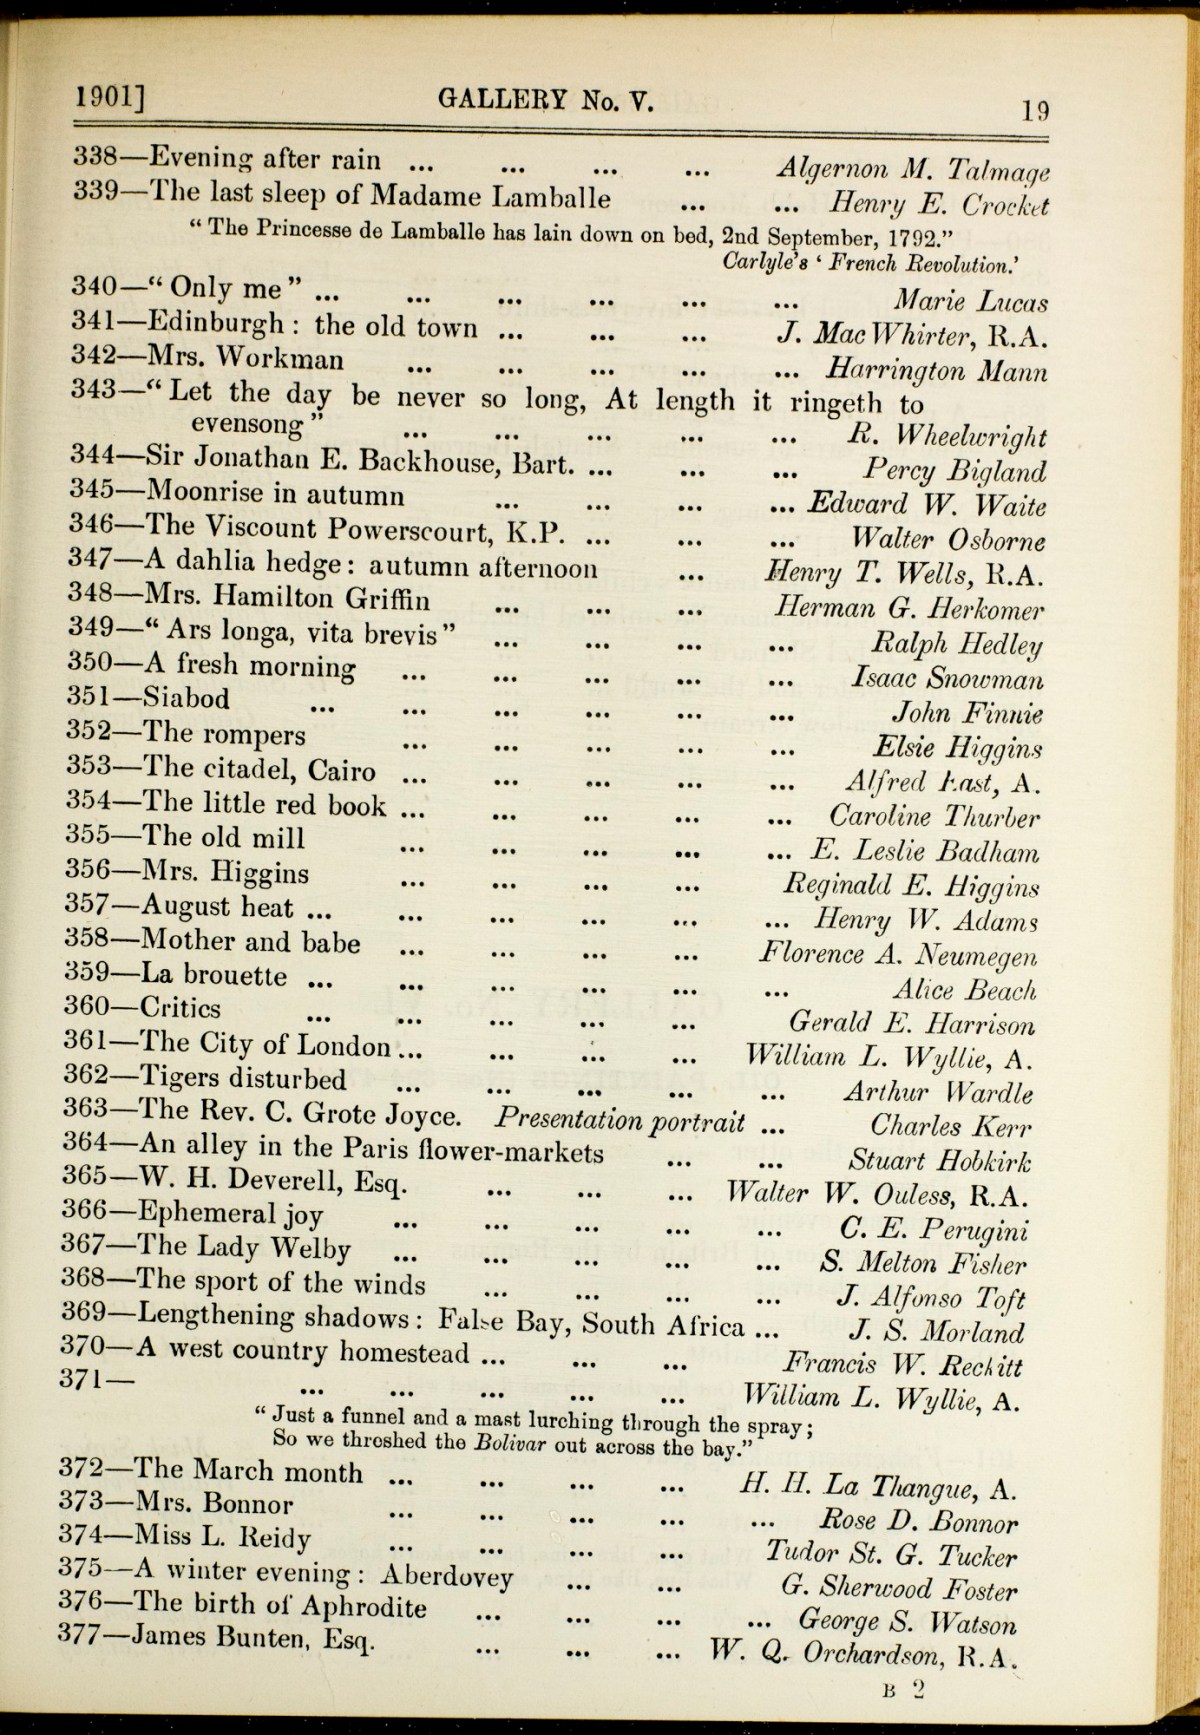 1901] GALLERY No. V. 19
338—Evening after rain ... ... ... ... Algernon M. Talmage
339—The last sleep of Madame Lamballe ... ... Henry E. Crocket
“ The Princesse de Lamballe has lain down on bed, 2nd September, 1792.”
Carlyle's ‘ French Revolution.’
340—“ Only me ” ... ... ... ... ... ... Marie Lucas
341—Edinburgh : the old town ... ... ... J. MacWhirter, R.A.
342—Mrs. Workman ... ... ... ... ... Harrington Mann
343—“ Let the day be never so long, At length it ringeth to
evensong ” ... ... ... ... ... R. Wheelwright
344—Sir Jonathan E. Backhouse, Bart. ... ... ... Percy Bigland
345—Moonrise in autumn ... ... ... ... Edward W. Waite
346—The Viscount Powerscourt, K.P. ... ... ... Walter Osborne
347—A dahlia hedge : autumn afternoon ... Henry T. Wells, R.A.
348—Mrs. Hamilton Griffin ... ... ... Herman G. Herkomer
349—“ Ars longa, vita brevis ” ... ... ... ... Ralph Hedley
350—A fresh morning ... ... ... ... ... Isaac Snowman
351—Siabod ... ... ... ... ... ... John Finnie
352—The rompers ... ... ... ... ... Elsie Higgins
353—The citadel, Cairo ... ... ... ... ... Alfred East, A.
354—The little red book ... ... ... ... ... Caroline Thurber
355—The old mill ... ... ... ... ... E. Leslie Badham
356—Mrs. Higgins ... ... ... ... Reginald E. Higgins
357—August heat ... ... ... ... ... ... Henry W. Adams
358—Mother and babe ... ... ... ... Florence A. Neumegen
359—La brouette ... ... ... ... ... ... Alice Beach
360—Critics ... ... ... ... ... Gerald E. Harrison
361—The City of London ... ... ... ... William L. Wyllie, A.
362—Tigers disturbed ... ... ... ... ... Arthur Wardle
363—The Rev. C. Grote Joyce. Presentation portrait ... Charles Kerr
364—An alley in the Paris flower-markets ... ... Stuart Hobkirk
365—W. H. Deverell, Esq. ... ... ... Walter W. Ouless, R.A.
366—Ephemeral joy ... ... ... ... ... C. E. Perugini
367—The Lady Welby ... ... ... ... ... S. Melton Fisher
368—The sport of the winds ... ... ... ... J. Alfonso Toft
369—Lengthening shadows : False Bay, South Africa ... J. S. Morland
370—A west country homestead ... ... ... Francis W. Reckitt
371— ... ... ... ... ... William L. Wyllie, A.
“ Just a funnel and a mast lurching through the spray ;
So we threshed the Bolivar out across the bay.”
372—The March month ... ... ... ... H. H. La Thangue, A.
373—Mrs. Bonnor ... ... ... ... ... Rose D. Bonnor
374—Miss L. Reidy ... ... ... ... Tudor St. G. Tucker
375—A winter evening : Aberdovey ... ... G. Sherwood Foster
376—The birth of Aphrodite ... ... ... ... George S. Watson
377—James Bunten, Esq. ... ... ... W. Q. Orchardson, R.A.
B 2